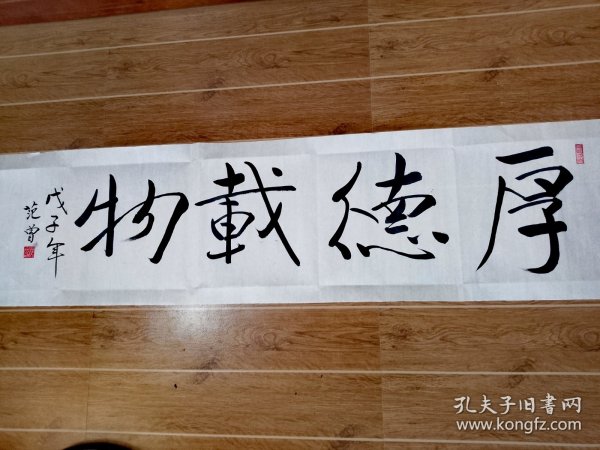 厚德載物
戊子年
范曾
孔夫子旧書网
www.kongfz.com